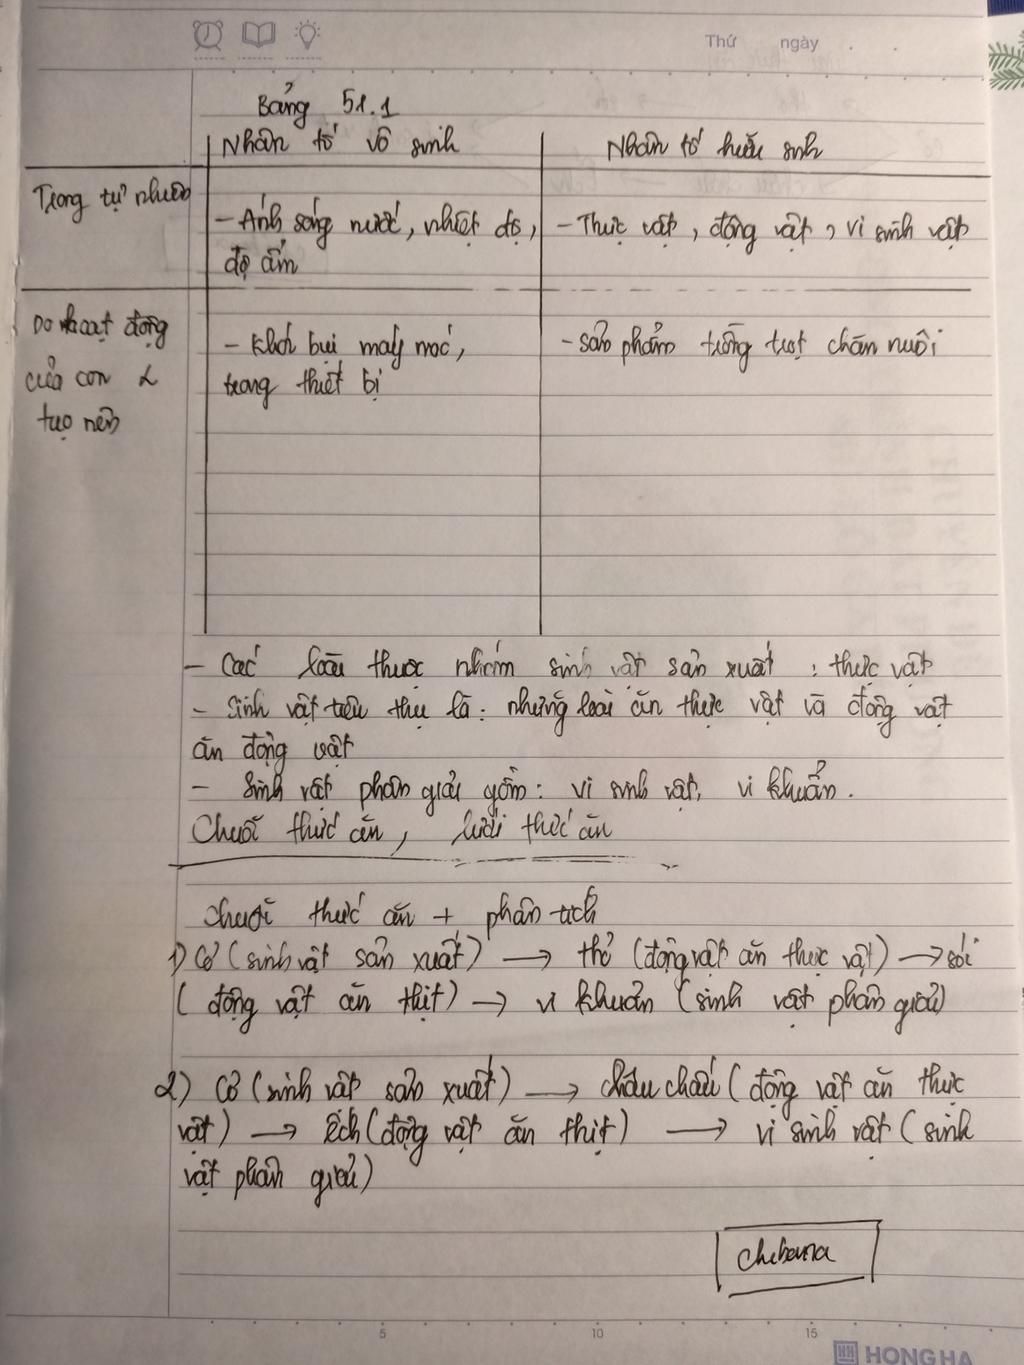 Thứ ngày . .
Bảng 51.1
Nhân tố vô sinh
Nhân tố hữu sinh
Trong tự nhiên
- Ánh sáng nước, nhiệt độ,
độ ẩm
- Thực vật, động vật, vi sinh vật
Do hoạt động
của con
tạo nên
- Khói bụi máy móc,
trang thiết bị
- sản phẩm trồng trọt chăn nuôi
- Các loài thuộc nhóm sinh vật sản xuất : thực vật
- Sinh vật tiêu thụ là: những loài ăn thực vật và động vật
ăn động vật
- Sinh vật phân giải gồm: vi sinh vật, vi khuẩn.
Chuỗi thức ăn, lưới thức ăn
chuỗi thức ăn + phân tích
1) Cỏ (sinh vật sản xuất) → thỏ (động vật ăn thực vật) → sói
(động vật ăn thịt) → vi khuẩn (sinh vật phân giải)
2) Cỏ (sinh vật sản xuất) → châu chấu (động vật ăn thực
vật) → ếch (động vật ăn thịt) → vi sinh vật (sinh
vật phân giải)
5 10 15
HH HONG HA